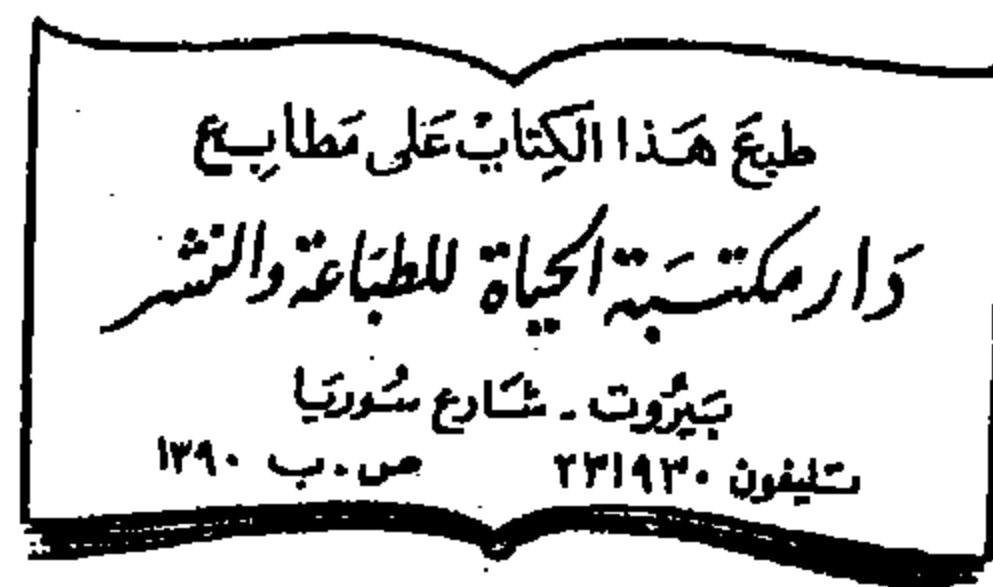 طبعَ هَذا الكِتابْ عَلى مَطابِع
دَار مكتبَة الحياة للطبَاعة والنشر
بَيرُوت - شَارع سُوريَا
تليفون ٢٣١٩٣٠ ص . ب ١٣٩٠